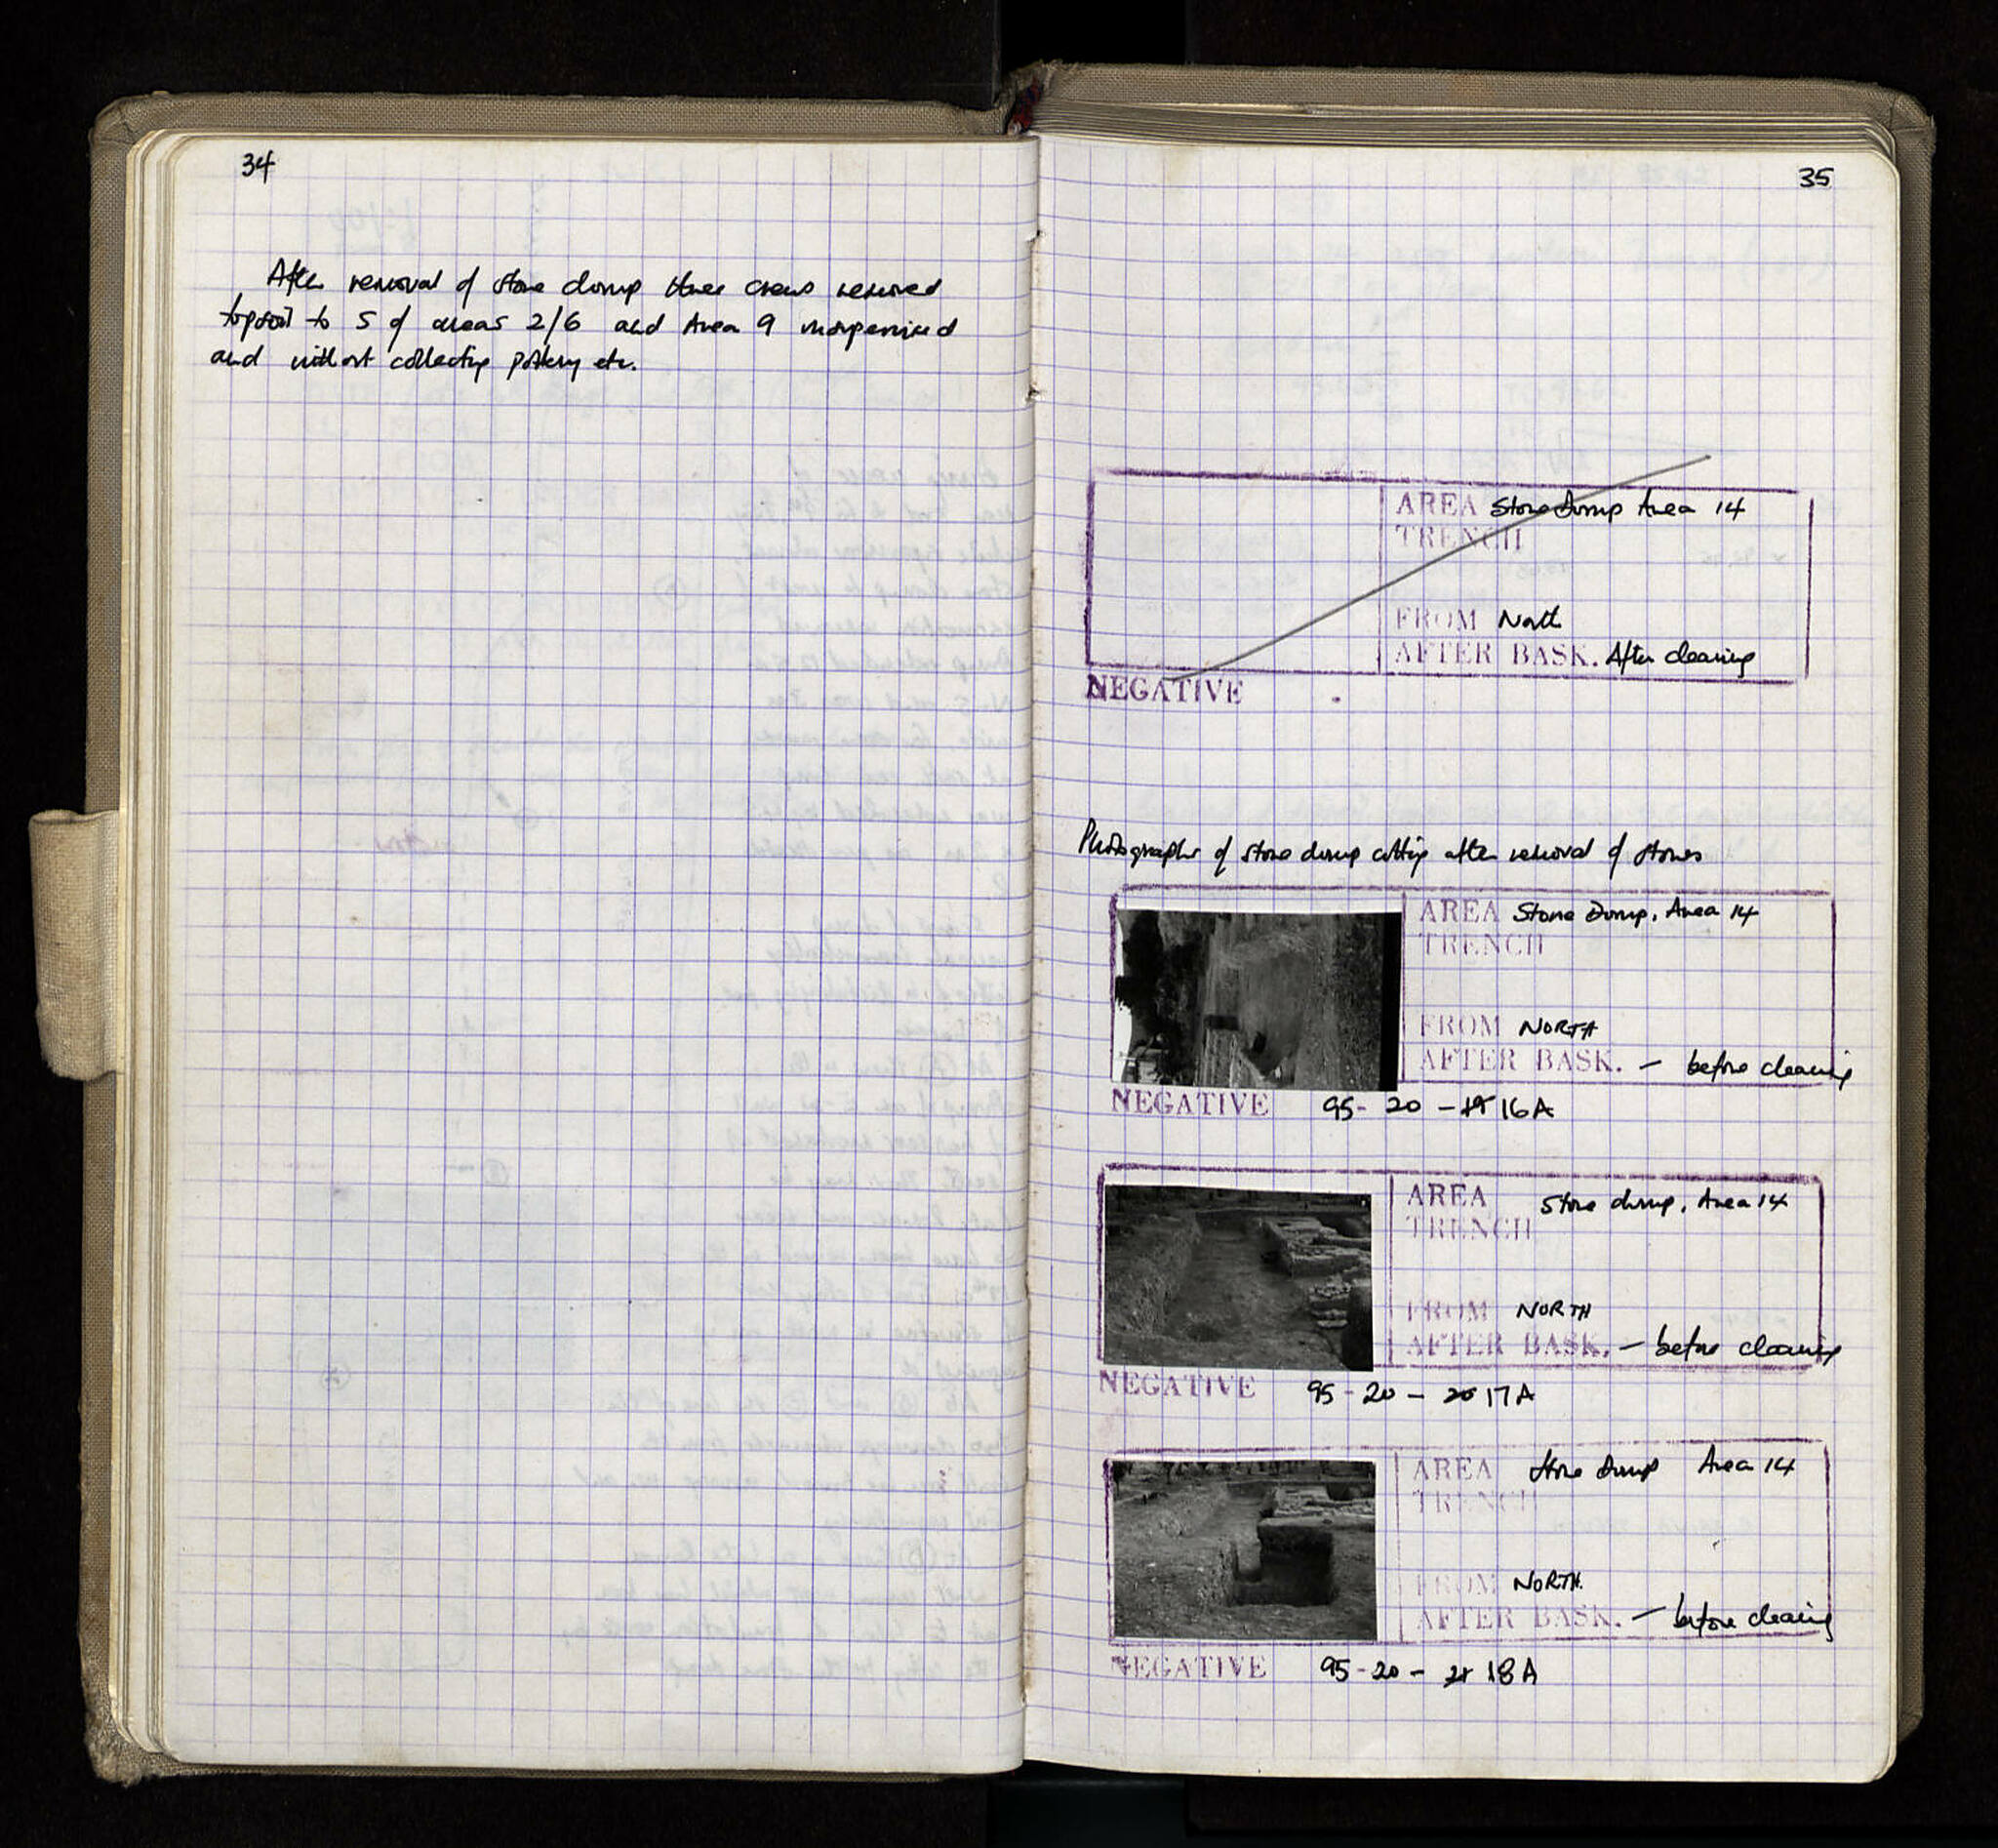 34
After removal of stone dump three crews removed
topsoil to S of areas 2/6 and Area 9 unsupervised
and without collecting pottery etc.
35
AREA Stone Dump Area 14
TRENCH
FROM North
AFTER BASK. After cleaning
NEGATIVE
Photographs of stone dump cutting after removal of stones
AREA Stone Dump, Area 14
TRENCH
FROM NORTH
AFTER BASK. - before cleaning
NEGATIVE 95-20-16A
AREA Stone dump, Area 14
TRENCH
FROM NORTH
AFTER BASK. - before cleaning
NEGATIVE 95-20-17A
AREA Stone Dump Area 14
TRENCH
FROM NORTH.
AFTER BASK. - before cleaning
NEGATIVE 95-20-18A